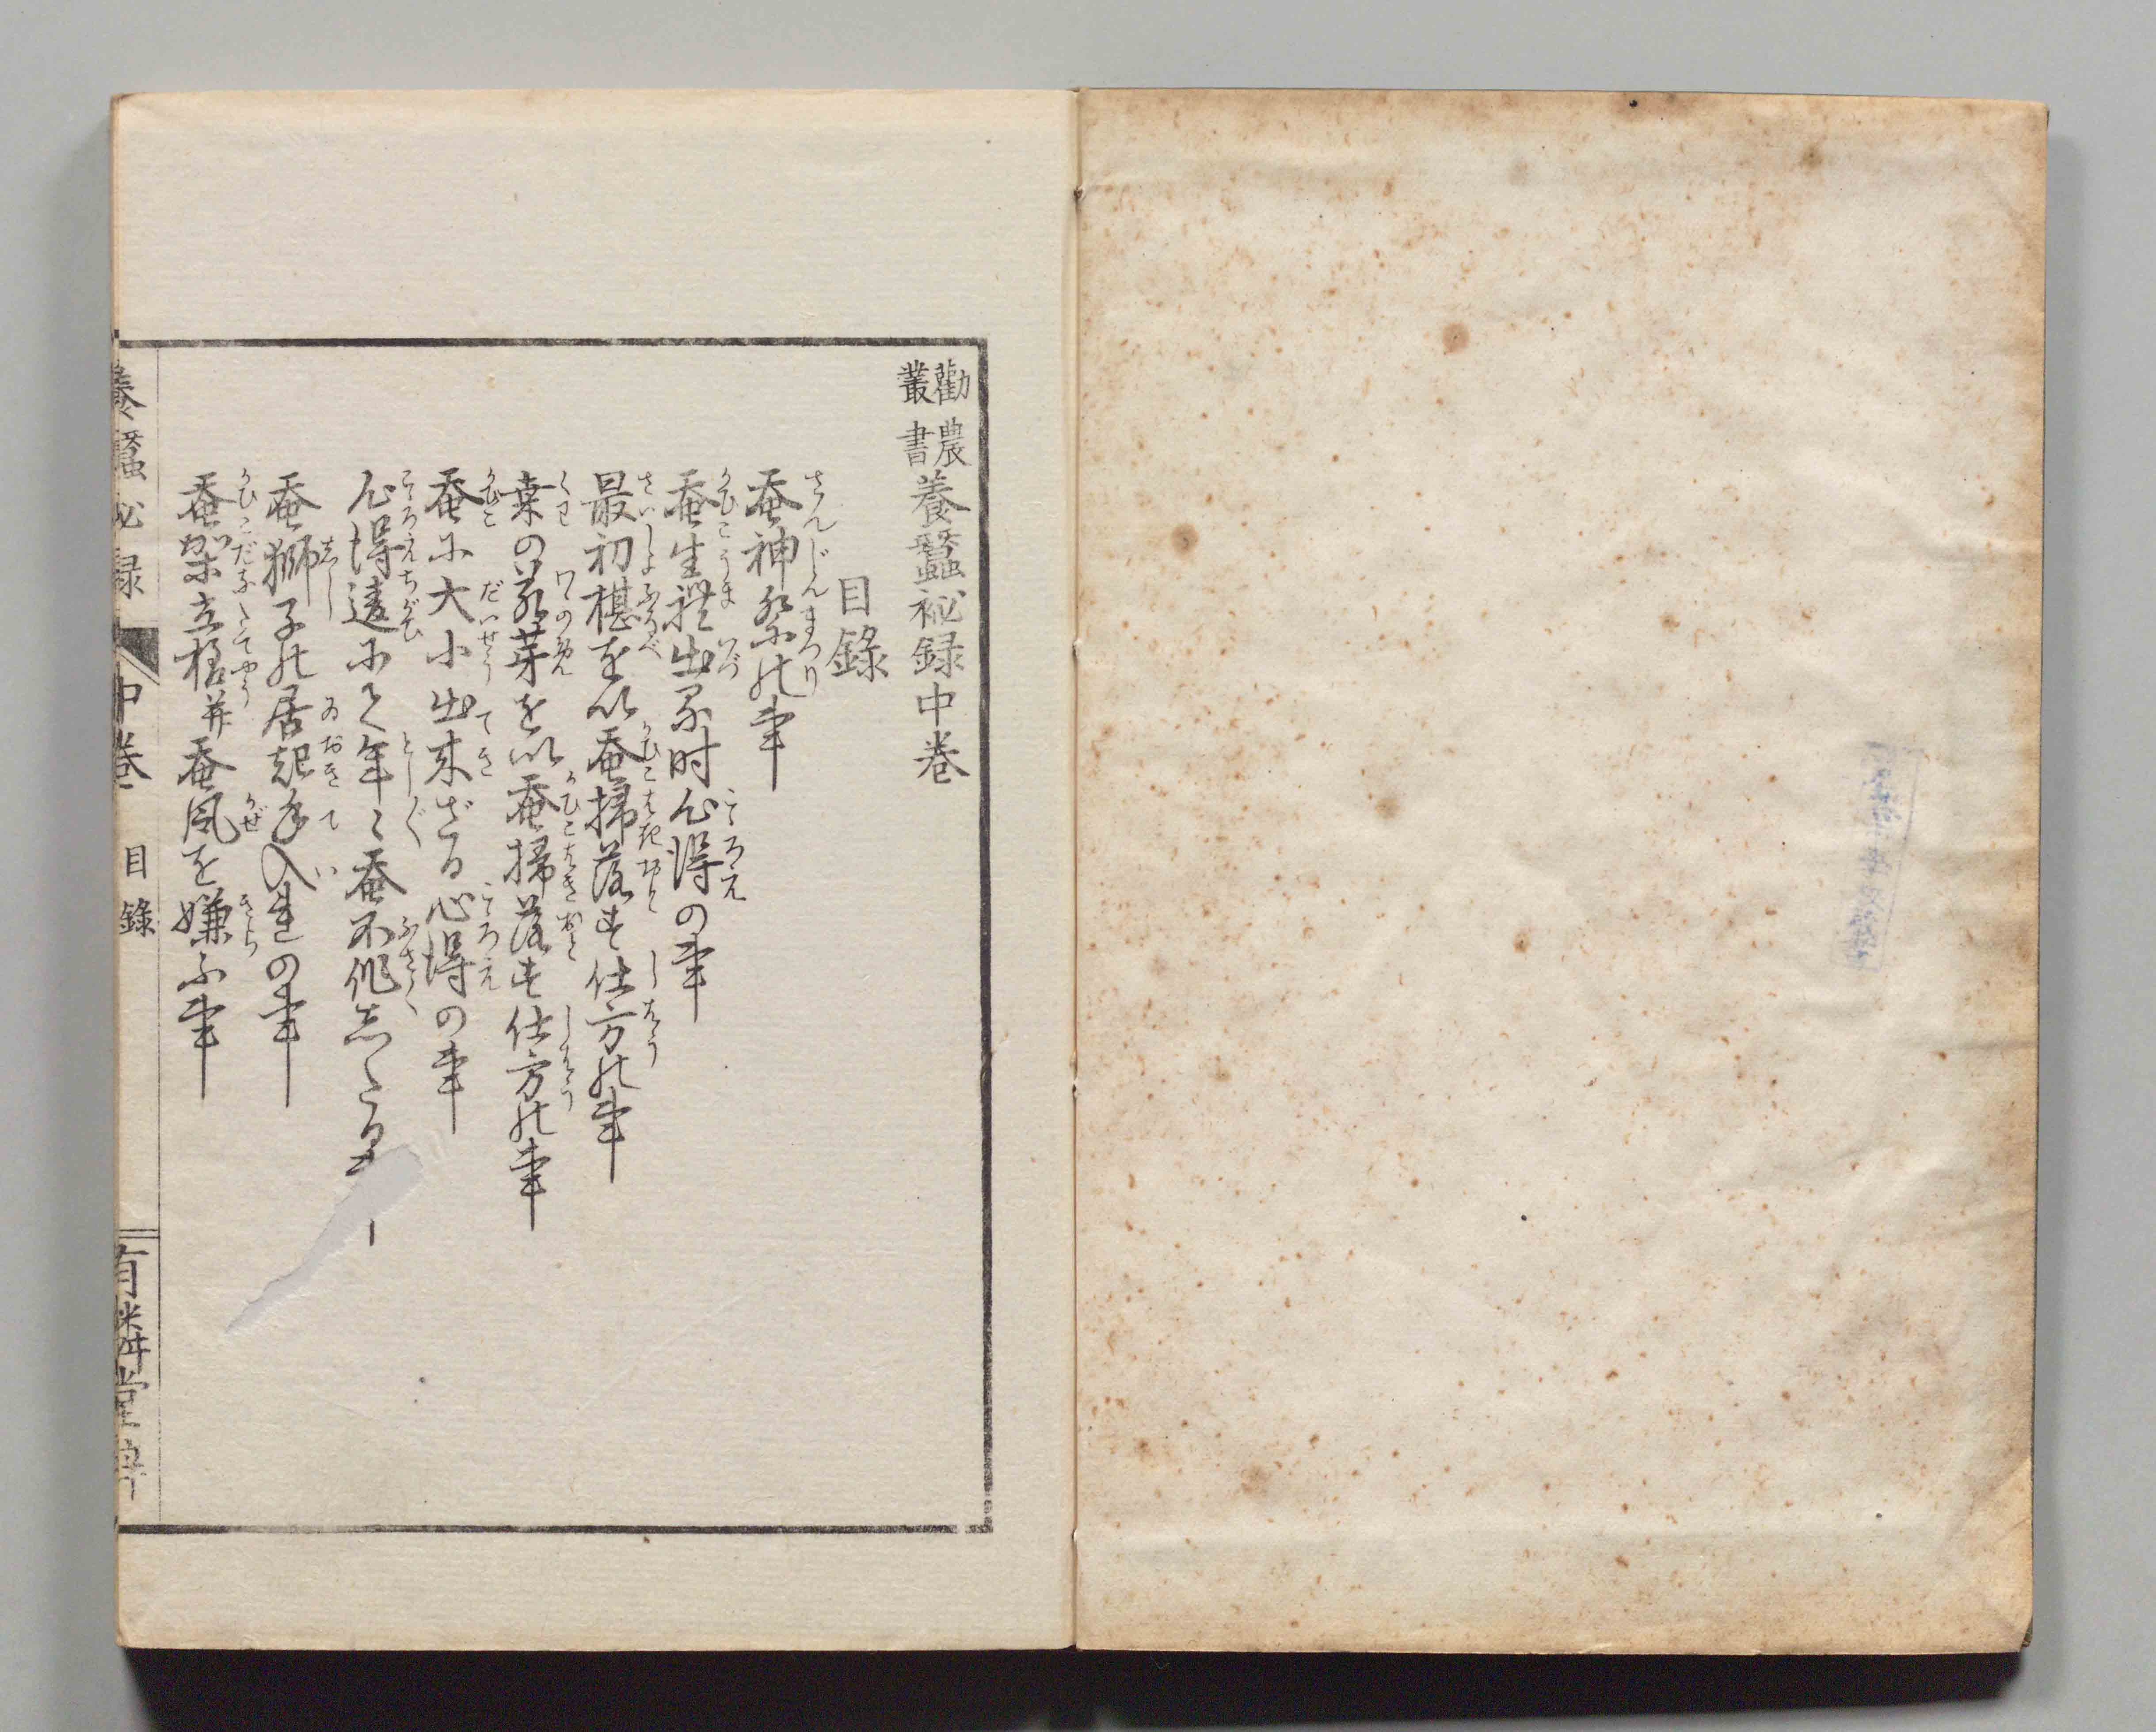 勸農叢書 養蠶祕録中巻
目錄
蚕神祭の事
蚕生れ出る时心得の事
最初椹を以蚕掃落す仕方の事
桑の若芽を以蚕掃落す仕方の事
蚕に大小出来ざる心得の事
心得違にて年〻蚕不作したる
蚕獅子の居起手入の事
蚕架立様并蚕風を嫌ふ事
養蠶祕録 中巻 目錄 有隣堂